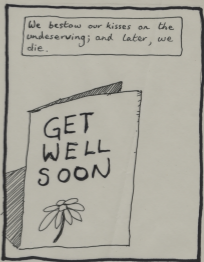 We bestow our kisses on the
undeserving; and later, we
die.
GET
WELL
SOON